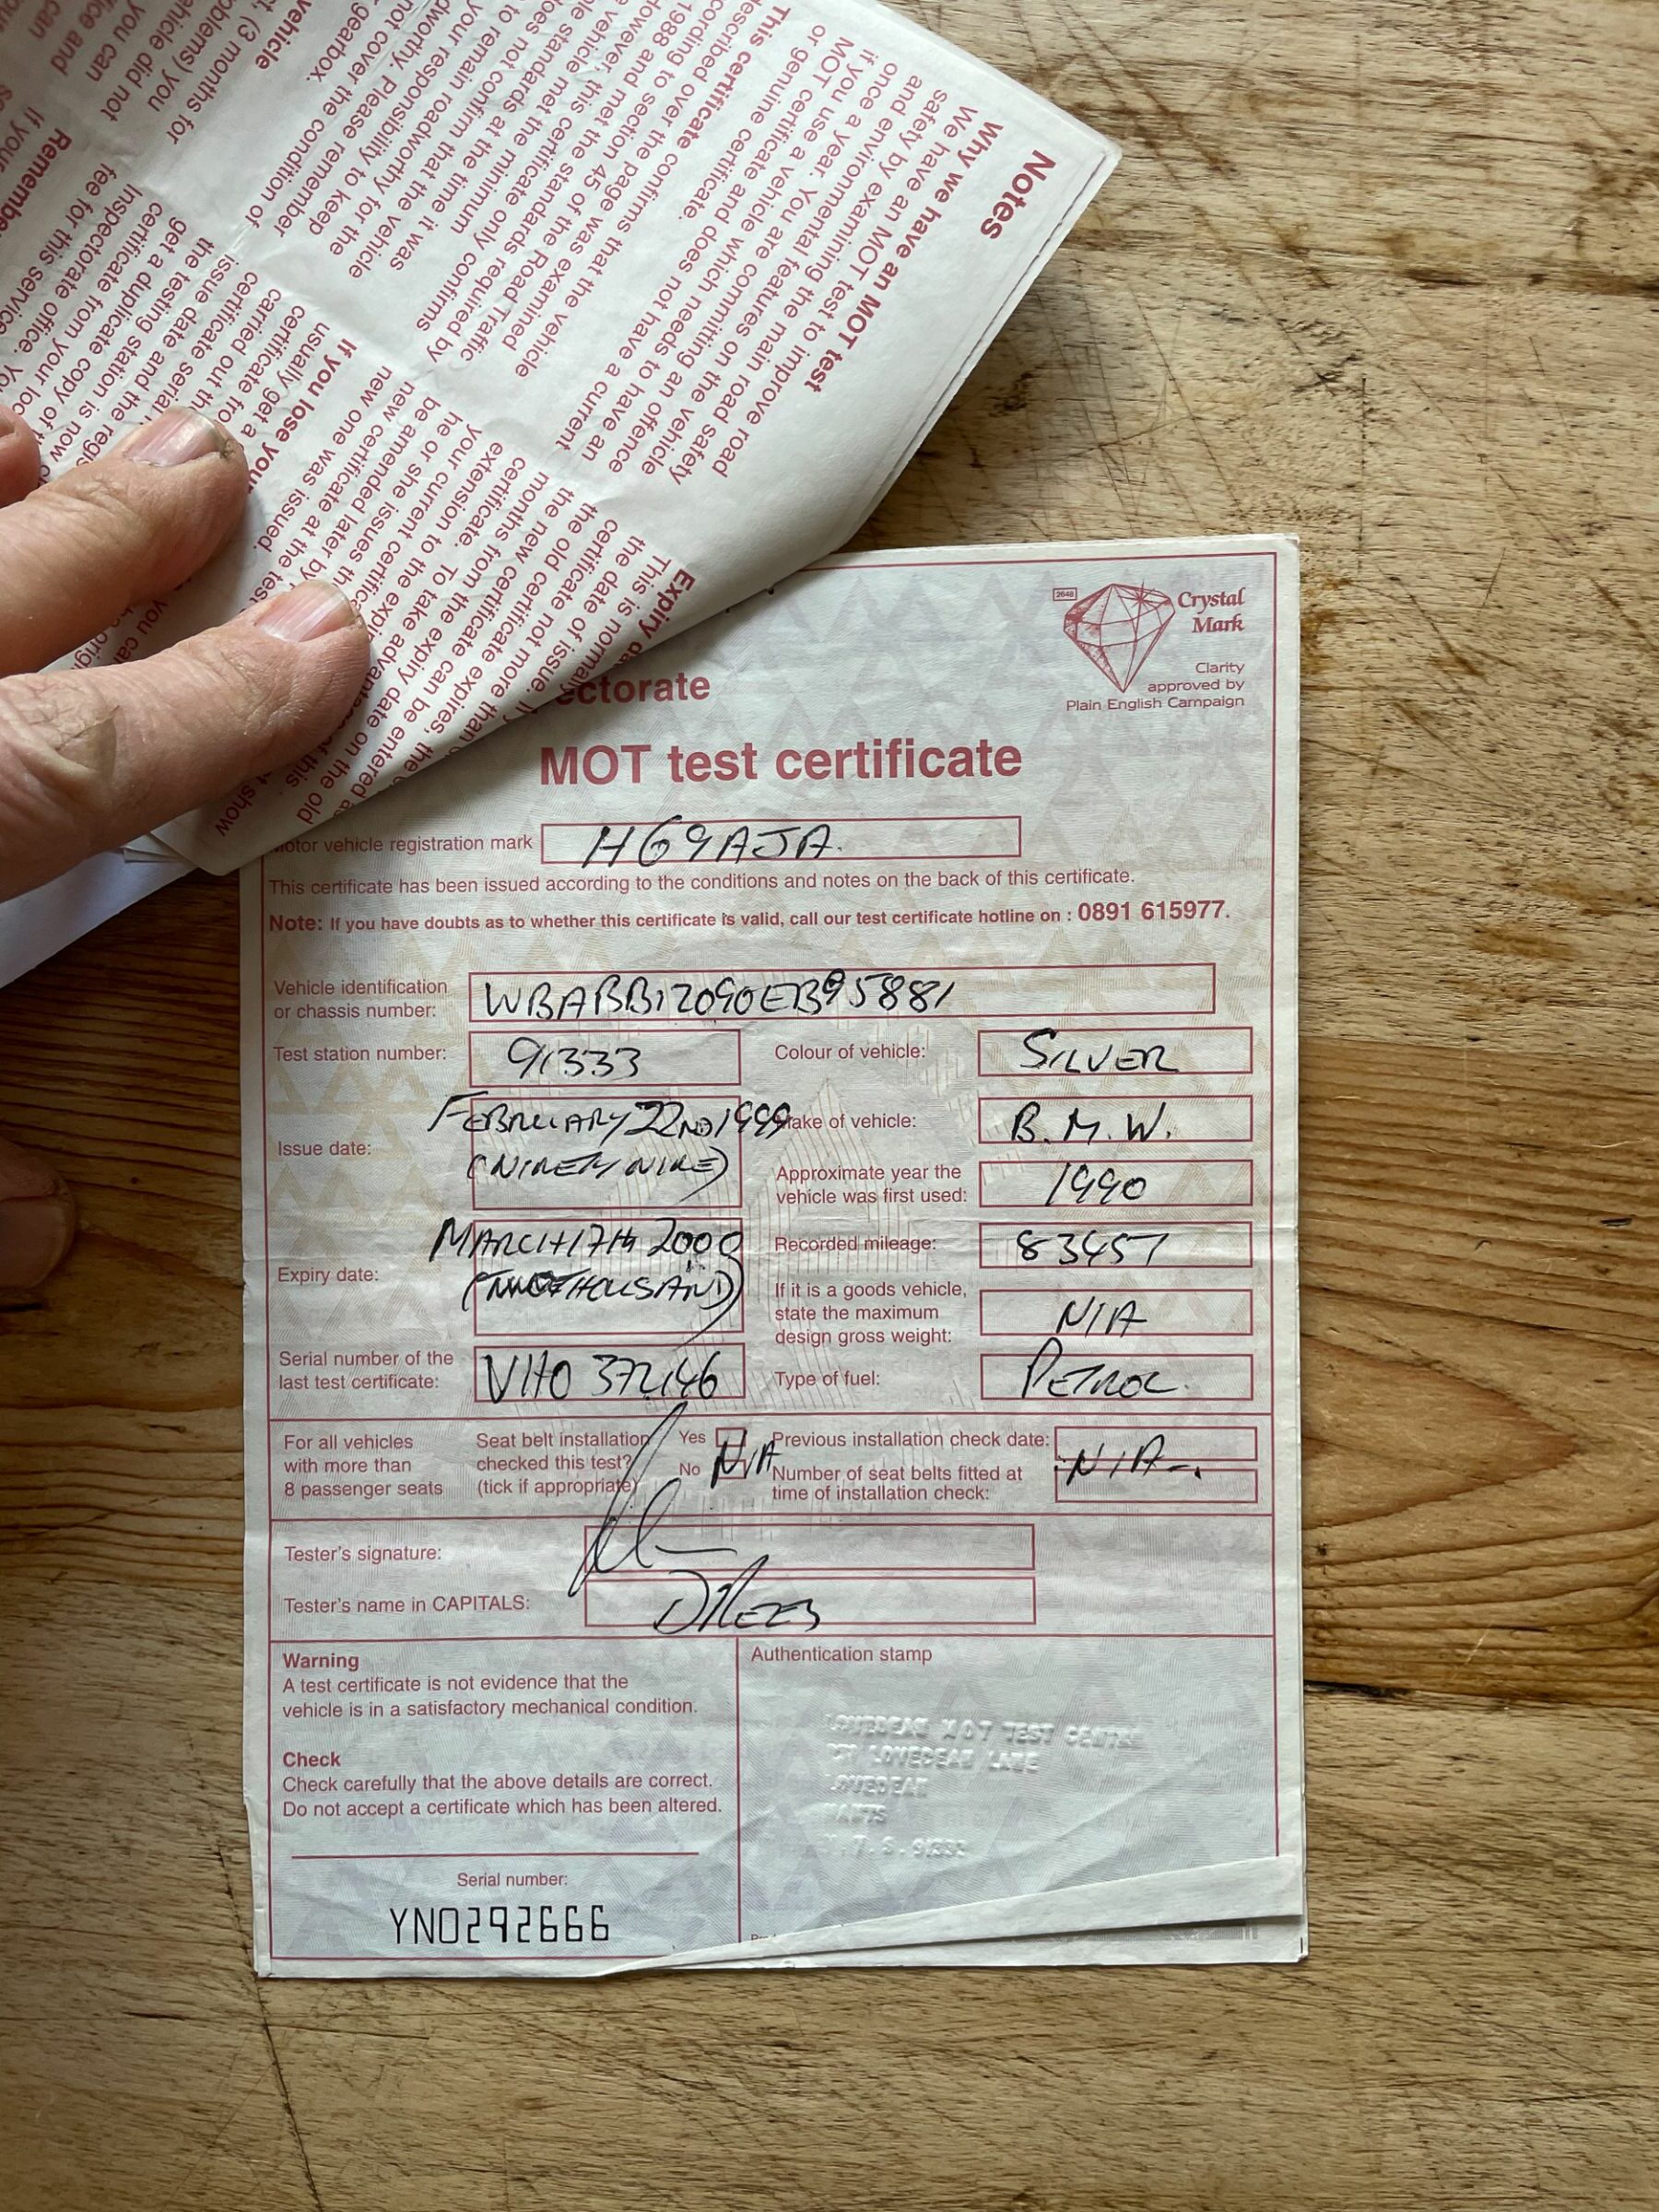 Notes
Why we have an MOT test
We have an MOT test to improve road
safety by examining the main road safety
and environmental features on the vehicle
once a year. You are committing an offence
if you use a vehicle which needs to have an
MOT certificate and does not have a current
or genuine certificate.
This certificate confirms that the vehicle
described over the page was examined
according to section 45 of the Road Traffic
1988 and met the standards required by
however, this certificate only confirms
vehicle met the minimum
standards at the time it was
does not confirm that the vehicle
to remain roadworthy for the
your responsibility to keep
Please remember
not cover the condition of
gearbox.
vehicle
(3 months for
you
vehicle did not
you can
and
can
Expiry
This is normally
the date of issue.
certificate not more than
the old certificate expires, the
the new certificate can be entered
months from the expiry date on the old
certificate. To take
extension to the
your current
he or she issues
be amended later by
new certificate at the
new one was issued.
If you lose your
usually get a
certificate
carried out
certificate serial
issue date and the
the testing station is now
get a duplicate copy of
certificate from your
Inspectorate office.
fee for this service.
If your
ectorate
2648
Crystal
Mark
Clarity
approved by
Plain English Campaign
MOT test certificate
Motor vehicle registration mark H69AJA
This certificate has been issued according to the conditions and notes on the back of this certificate.
Note: If you have doubts as to whether this certificate is valid, call our test certificate hotline on : 0891 615977.
Vehicle identification
or chassis number: WBABB12090EB95881
Test station number: 91333
Colour of vehicle: SILVER
Issue date: FEBRUARY 22ND 1999
(NINETY NINE)
Make of vehicle: B.M.W.
Approximate year the
vehicle was first used: 1990
Expiry date: MARCH 17TH 2000
(TWO THOUSAND)
Recorded mileage: 83457
If it is a goods vehicle,
state the maximum
design gross weight: N/A
Serial number of the
last test certificate: VHO 372146
Type of fuel: PETROL
For all vehicles
with more than
8 passenger seats
Seat belt installation
checked this test?
(tick if appropriate)
Yes
No
N/A
Previous installation check date:
Number of seat belts fitted at
time of installation check:
N/A
Tester's signature:
Tester's name in CAPITALS:
Warning
A test certificate is not evidence that the
vehicle is in a satisfactory mechanical condition.
Check
Check carefully that the above details are correct.
Do not accept a certificate which has been altered.
Serial number:
YN0292666
Authentication stamp
LOVEDEAN MOT TEST CENTRE
LOVEDEAN LANE
LOVEDEAN
HANTS
91333